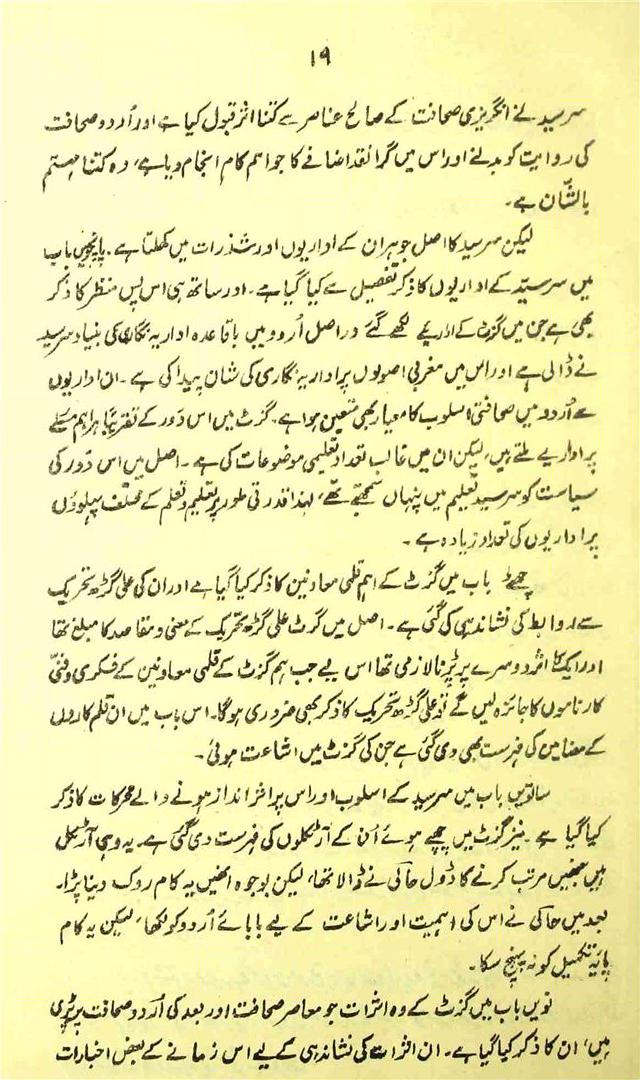 ۱۹
سرسید نے انگریزی صحافت کے صالح عناصر سے کتنا اثر قبول کیا ہے اور اُردو صحافت
کی روایت کو بدلنے اور اس میں گرانقدر اضافے کا جو اہم کام انجام دیا ہے، وہ کتنا مہتم
بالشّان ہے۔
لیکن سرسید کا اصل جوہر ان کے اداریوں اور شذرات میں کھلتا ہے۔ پانچویں باب
میں سرسیّد کے اداریوں کا ذکر تفصیل سے کیا گیا ہے۔ اور ساتھ ہی اس پس منظر کا ذکر
بھی ہے جن میں گزٹ کے اداریے لکھے گئے دراصل اُردو میں باقاعدہ اداریہ نگاری کی بنیاد سرسید
نے ڈالی ہے اور اس میں مغربی اصولوں پر اداریہ نگاری کی شان پیدا کی ہے۔ ان اداریوں
سے اُردو میں صحافتی اسلوب کا معیار بھی متعین ہوا ہے۔ گزٹ میں اس دَور کے تقریباً ہر اہم مسئلے
پر اداریے ملتے ہیں، لیکن ان میں غالب تعداد تعلیمی موضوعات کی ہے۔ اصل میں اس دَور کی
سیاست کو سرسید تعلیم میں پنہاں سمجھتے تھے، لہٰذا قدرتی طور پر تعلیم و تعلم کے مختلف پہلوؤں
پر اداریوں کی تعداد زیادہ ہے۔
چھٹے باب میں گزٹ کے اہم قلمی معاونین کا ذکر کیا گیا ہے اور ان کی علی گڑھ تحریک
سے روابط کی نشاندہی کی گئی ہے۔ اصل میں گزٹ علی گڑھ تحریک کے معنی و مقاصد کا مبلغ تھا
اور ایک کا اثر دوسرے پر پڑنا لازمی تھا اس لیے جب ہم گزٹ کے قلمی معاونین کے فکری و فنّی
کارناموں کا جائزہ لیں گے تو علی گڑھ تحریک کا ذکر بھی ضروری ہوگا۔ اس باب میں ان قلم کاروں
کے مضامین کی فہرست بھی دی گئی ہے جن کی گزٹ میں اشاعت ہوئی۔
ساتویں باب میں سرسید کے اسلوب اور اس پر اثر انداز ہونے والے محرکات کا ذکر
کیا گیا ہے۔ نیز گزٹ میں چھپے ہوئے اُن کے آرٹیکلوں کی فہرست دی گئی ہے۔ یہ وہی آرٹیکل
ہیں جنھیں مرتب کرنے کا ڈول حالی نے ڈالا تھا، لیکن بوجوہ انھیں یہ کام روک دینا پڑا۔
بعد میں حالی نے اس کی اہمیت اور اشاعت کے لیے بابائے اُردو کو لکھا، لیکن یہ کام
پایۂ تکمیل کو نہ پہنچ سکا۔
نویں باب میں گزٹ کے وہ اثرات جو معاصر صحافت اور بعد کی اُردو صحافت پر پڑی
ہیں، ان کا ذکر کیا گیا ہے۔ ان اثرات کی نشاندہی کے لیے اس زمانے کے بعض اخبارات